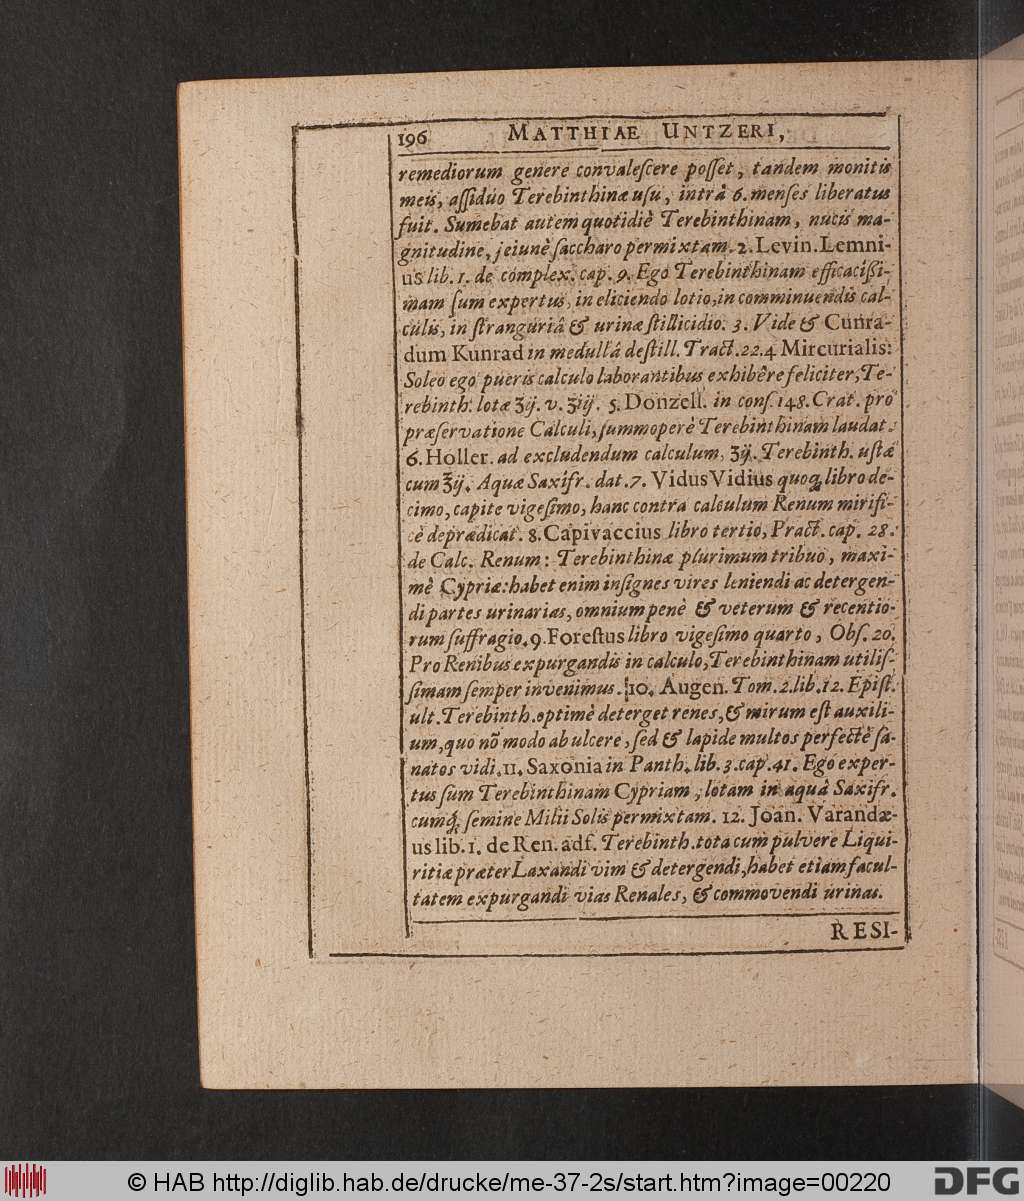 196 MATTHIAE UNTZERI,
remediorum genere convaleſcere poſſet, tandem monitis
meis, aſſiduo Terebinthinæ uſu, intrà 6. menſes liberatus
fuit. Sumebat autem quotidiè Terebinthinam, nucis ma-
gnitudine, jeiunè ſaccharo permixtam. 2. Levin. Lemni-
us lib. 1. de complex. cap. 9. Ego Terebinthinam efficacißi-
mam ſum expertus, in eliciendo lotio, in comminuendis cal-
culis, in ſtranguriâ & urinæ ſtillicidio. 3. Vide & Cunra-
dum Kunrad in medullâ deſtill. Tract. 22. 4 Mircurialis:
Soleo ego pueris calculo laborantibus exhibêre feliciter, Te-
rebinth. lotæ ʒij. v. ʒiij. 5. Donzell. in conſ. 148. Crat. pro
præſervatione Calculi, ſummoperè Terebinthinam laudat.
6. Holler. ad excludendum calculum, ʒij. Terebinth. uſtæ
cum ℥ij. Aquæ Saxifr. dat. 7. Vidus Vidius quoq; libro de-
cimo, capite vigeſimo, hanc contra calculum Renum mirifi-
cè deprædicat. 8. Capivaccius libro tertio, Pract. cap. 28.
de Calc. Renum: Terebinthinæ plurimum tribuo, maxi-
mè Cypriæ: habet enim inſignes vires leniendi ac detergen-
di partes urinarias, omnium penè & veterum & recentio-
rum ſuffragio. 9. Foreſtus libro vigeſimo quarto, Obſ. 20.
Pro Renibus expurgandis in calculo, Terebinthinam utiliſ-
ſimam ſemper invenimus. 10. Augen. Tom. 2. lib. 12. Epiſt.
ult. Terebinth. optimè deterget renes, & mirum eſt auxili-
um, quo nõ modo ab ulcere, ſed & lapide multos perfectè ſa-
natos vidi. 11. Saxonia in Panth. lib. 3. cap. 41. Ego exper-
tus ſum Terebinthinam Cypriam, lotam in aquâ Saxifr.
cumq; ſemine Milii Solis permixtam. 12. Joan. Varandæ-
us lib. 1. de Ren. adf. Terebinth. tota cum pulvere Liqui-
ritiæ præter Laxandi vim & detergendi, habet etiam facul-
tatem expurgandi vias Renales, & commovendi urinas.
RESI-
© HAB http://diglib.hab.de/drucke/me-37-2s/start.htm?image=00220
DFG